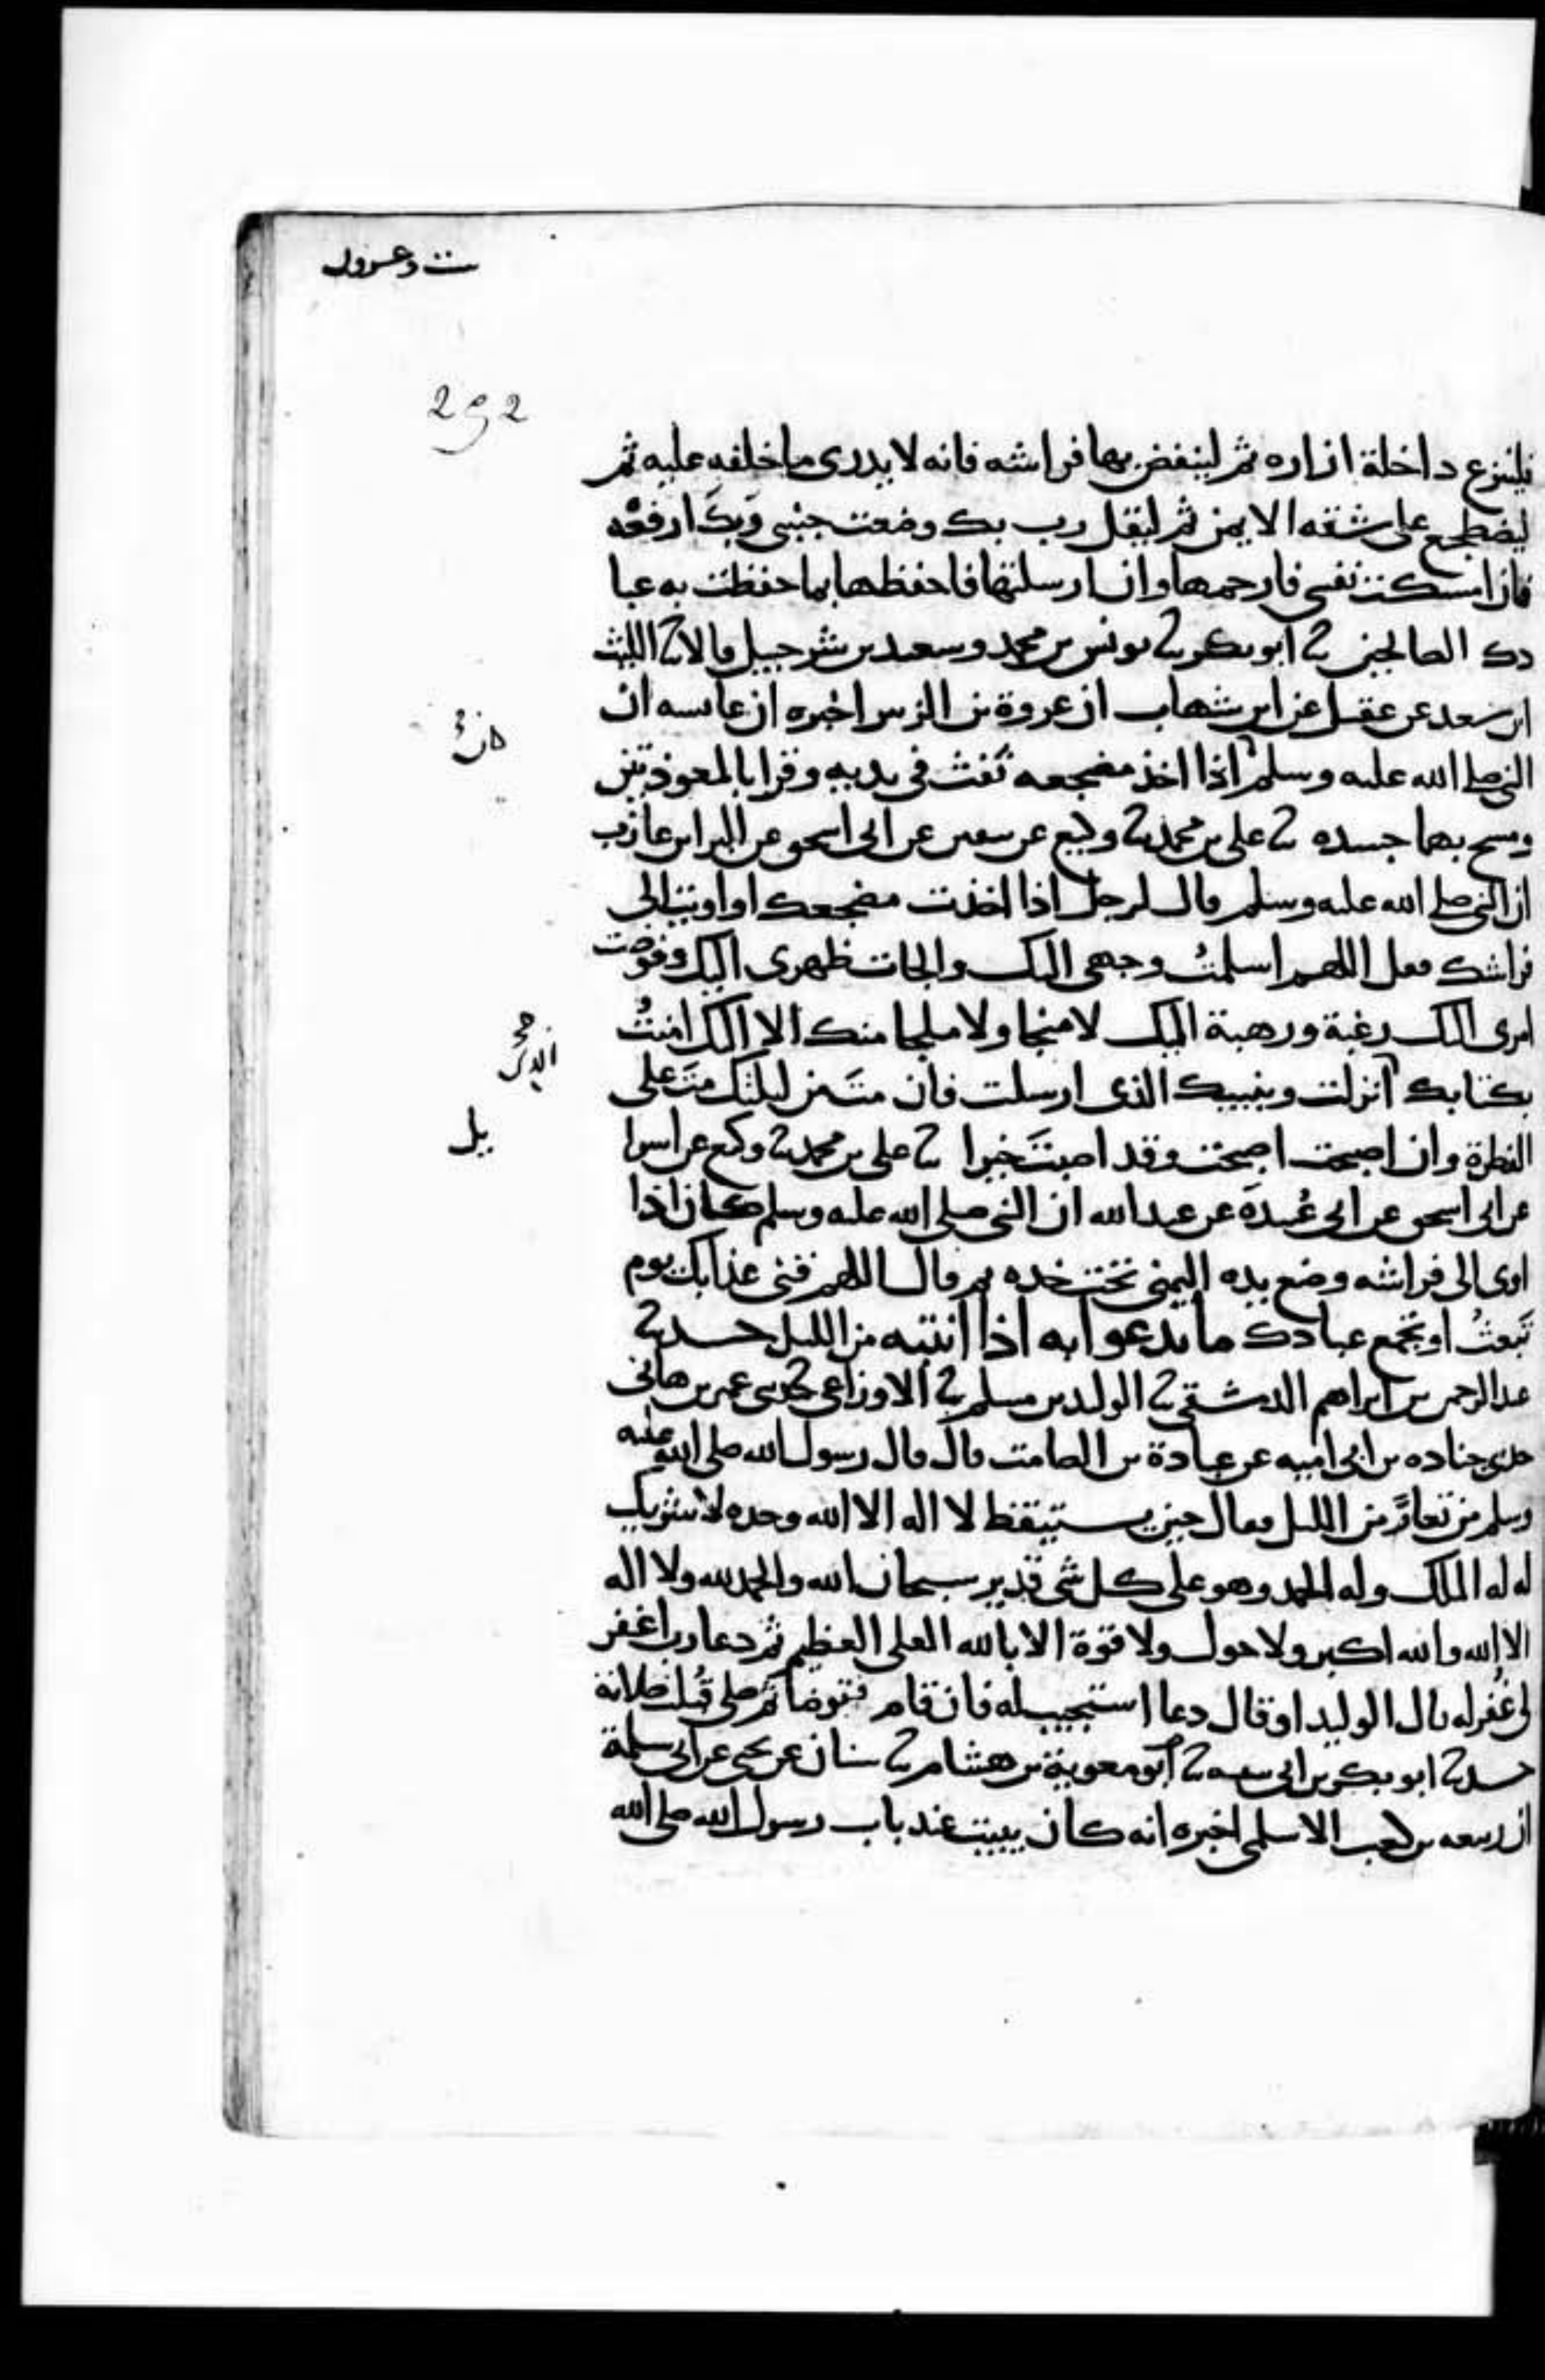 ست وعشرون
292
فلينزع داخلة ازاره ثم لينفض بها فراشه فانه لا يدرى ما خلفه عليه ثم
ليضطجع على شقه الايمن ثم ليقل رب بك وضعت جنبى وَبِكَ ارفعه
فان امسكت نفسى فارحمها وان ارسلتها فاحفظها بما حفظت به عبا
دك الصالحين ثنا ابو بكر ثنا يونس بن محمد وسعيد بن شرحبيل قالا ثنا الليث
ابن سعد عن عقيل عن ابن شهاب ان عروة بن الزبير اخبره ان عائشه ان
النبى صلى الله عليه وسلم اذا اخذ مضجعه نفث فى يديه وقرا بالمعوذتين
كان
ومسح بهما جسده ثنا على بن محمد ثنا وكيع عن سفين عن ابى اسحق عن البرا بن عازب
ان النبى صلى الله عليه وسلم قال لرجل اذا اخذت مضجعك او اويت الى
فراشك فقل اللهم اسلمتُ وجهى اليك والجات ظهرى اليك وفوضت
امرى اليك رغبة ورهبة اليك لا منجا ولا ملجا منك الا اليك امنتُ
بكتابك انزلت وبنبيك الذى ارسلت فان متَ من ليلتك متَ على
الذى
الفطرة وان اصبحت اصبحت وقد اصبتَ خيرا ثنا على بن محمد ثنا وكيع عن اسرا
يل
عن ابى اسحق عن ابى عُبيدَة عن عبد الله ان النبى صلى الله عليه وسلم كان اذا
اوى الى فراشه وضع يده اليمنى تحت خده ثم قال اللهم قنى عذابك يوم
تَبعثُ او تجمع عبادك ما يدعوا به اذا انتبه من الليل حدثنا
عبد الرحمن بن ابراهيم الدمشقى ثنا الوليد بن مسلم ثنا الاوزاعى حدثنى عمير بن هانى
حدثنى جناده بن ابى اميه عن عبادة بن الصامت قال قال رسول الله صلى الله عليه
وسلم من تعارَّ من الليل فقال حين يستيقظ لا اله الا الله وحده لا شريك
له له الملك وله الحمد وهو على كل شى قدير سبحان الله والحمد لله ولا اله
الا الله والله اكبر ولا حول ولا قوة الا بالله العلى العظيم ثم دعا رب اغفر
لى غُفر له قال الوليد او قال دعا استجيب له فان قام فتوضا ثم صلى قُبلت صلاته
حدثنا ابو بكر بن ابى شيبه ثنا ابو معوية بن هشام ثنا شيبان عن يحيى عن ابى سلمة
ان ربيعه بن كعب الاسلمى اخبره انه كان يبيت عند باب رسول الله صلى الله